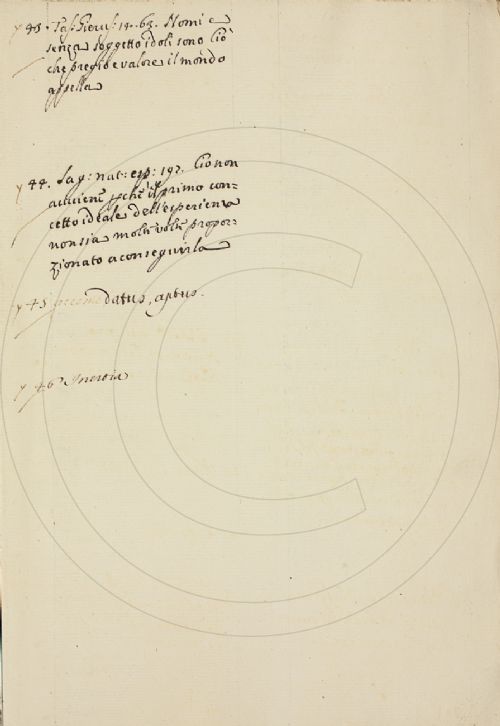 43. Tas: Gierus: 14. 63. Nomi e
senza soggetto idoli sono Ciò
che pregio e valore il mondo
appella
44. Sag: nat: esp: 192. Ciò non
avviene pchè il primo con=
cetto ideale dell'esperienza
non sia molte volte propor=
zionato a conseguirla
45 accomodatus, aptus.
46 Inertia